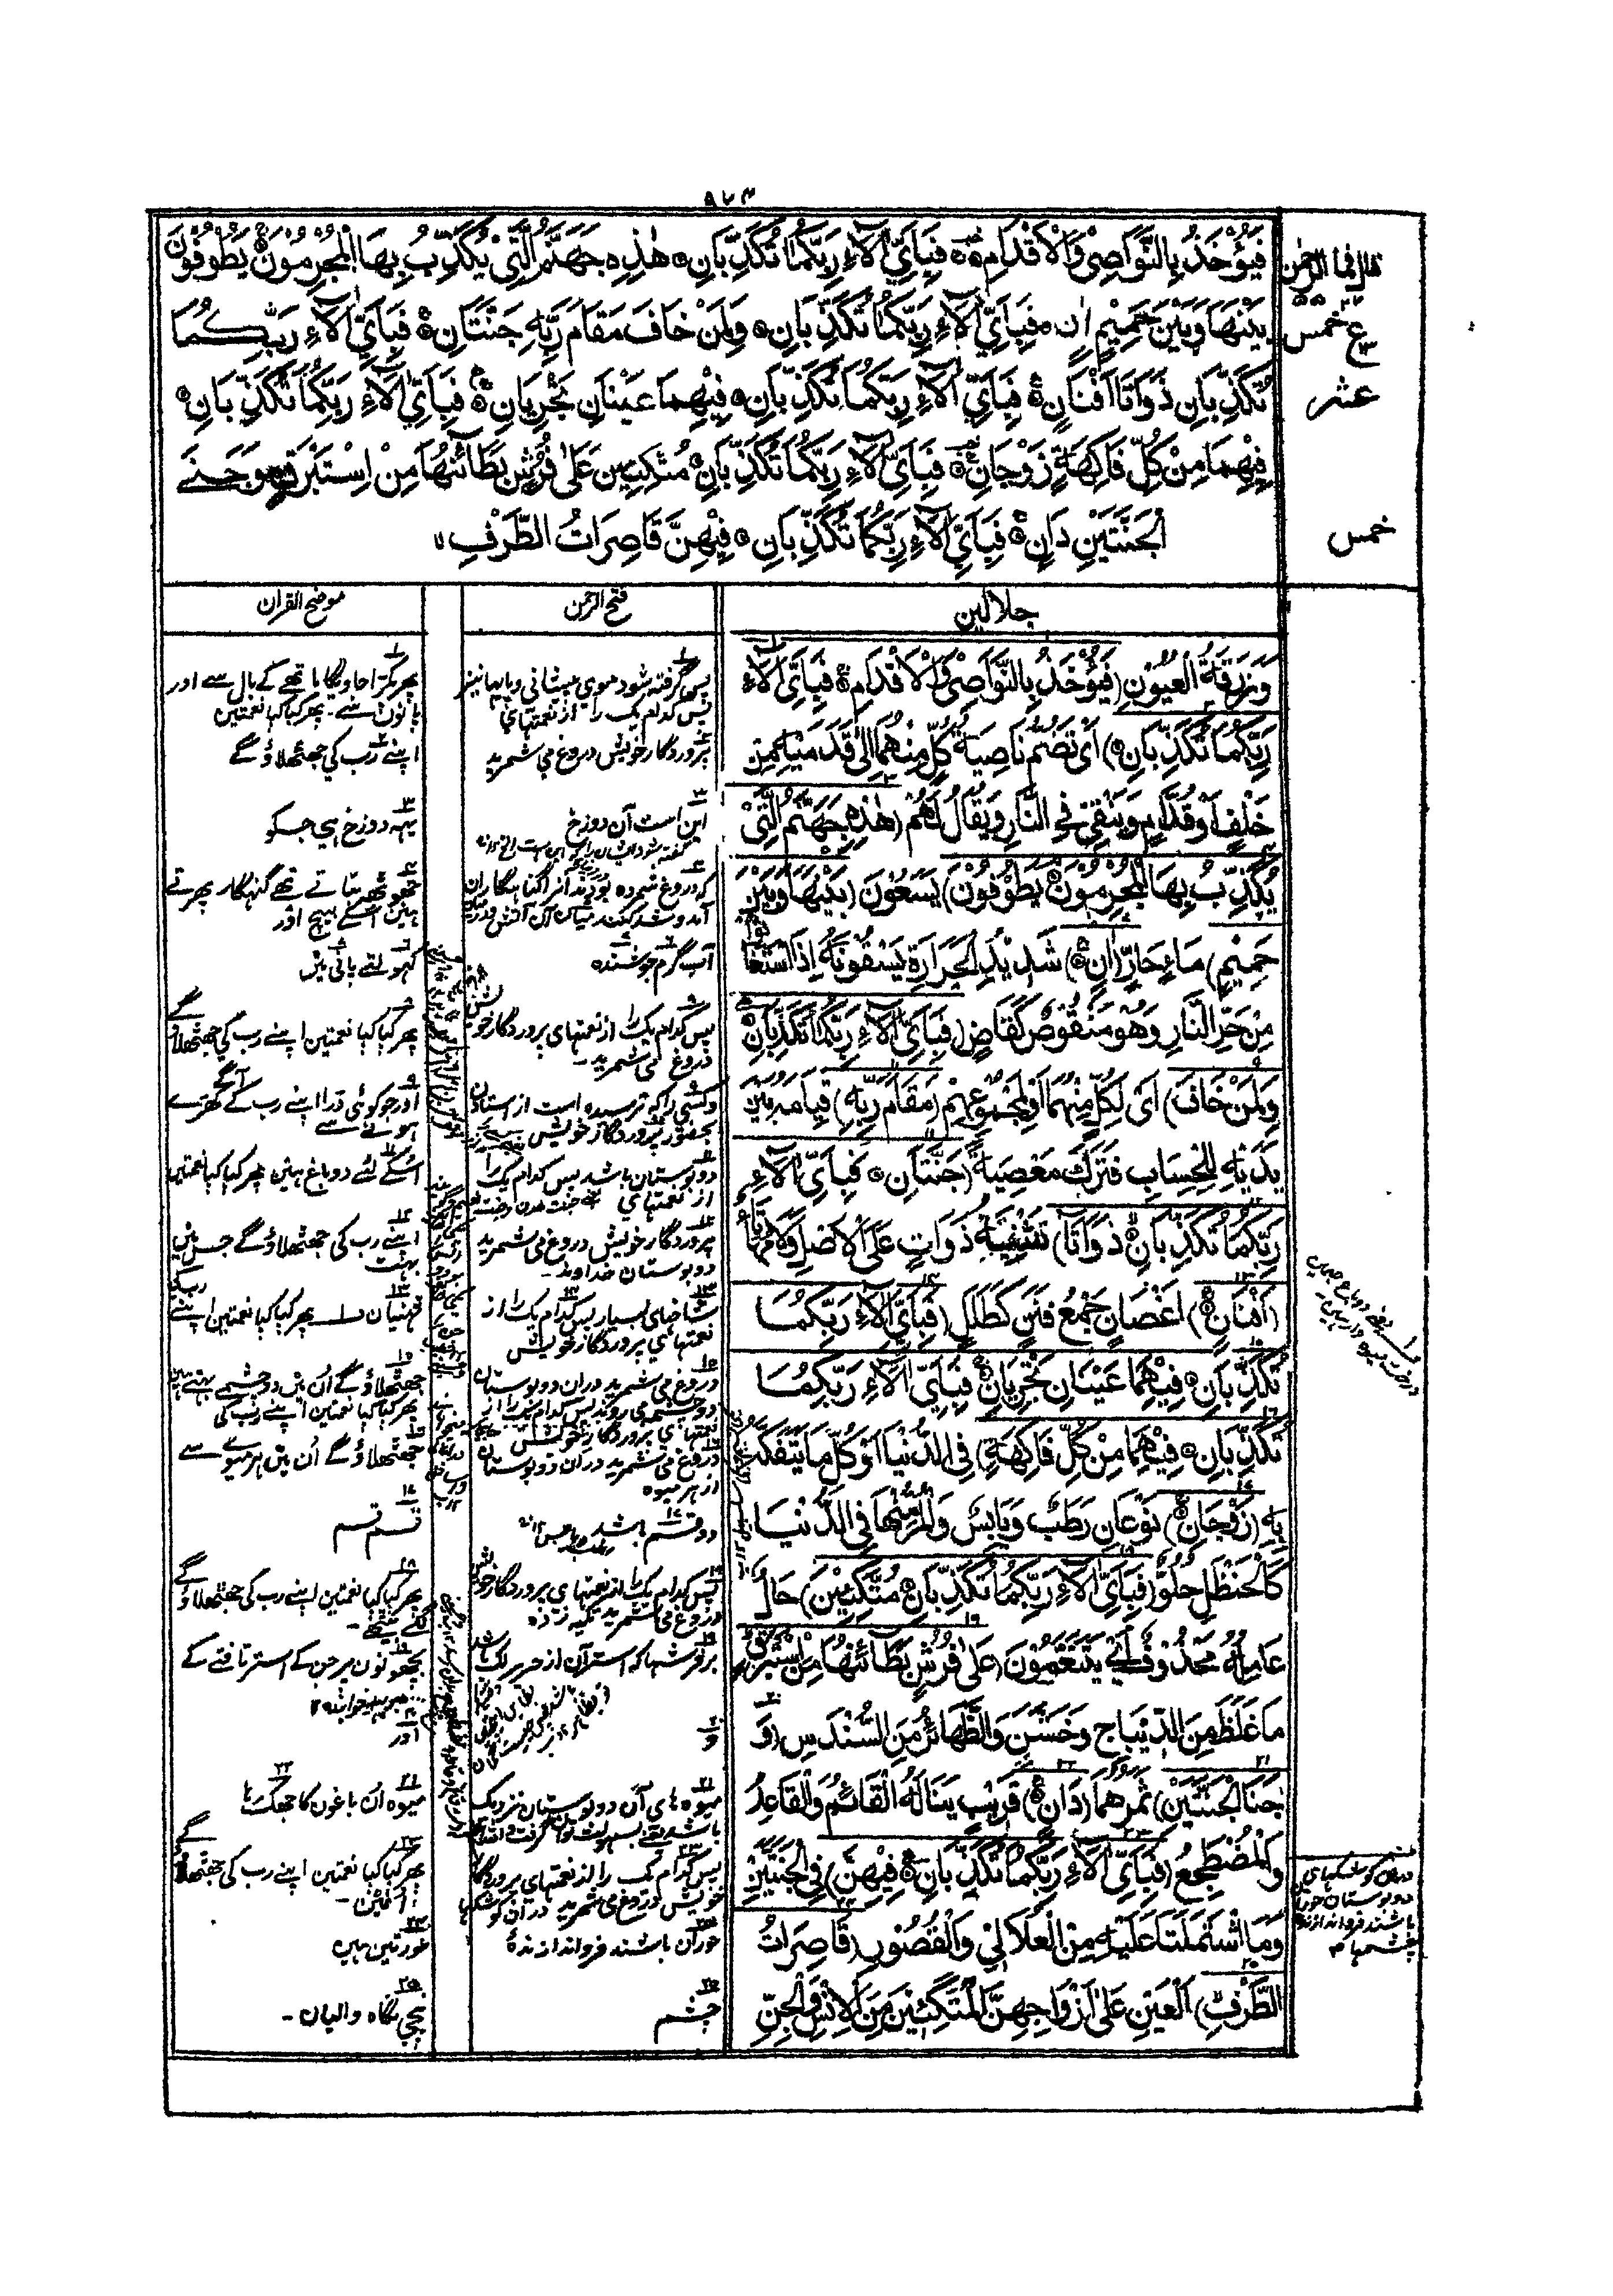 ۹۷۳
قال فما الرحمن
فَيُؤْخَذُ بِالنَّوَاصِيْ وَالْاَقْدَامِ فَبِاَيِّ اٰلَآءِ رَبِّكُمَا تُكَذِّبَانِ هٰذِهٖ جَهَنَّمُ الَّتِيْ يُكَذِّبُ بِهَا الْمُجْرِمُوْنَ يَطُوْفُوْنَ
بَيْنَهَا وَبَيْنَ حَمِيْمٍ اٰنٍ فَبِاَيِّ اٰلَآءِ رَبِّكُمَا تُكَذِّبَانِ وَلِمَنْ خَافَ مَقَامَ رَبِّهٖ جَنَّتَانِ فَبِاَيِّ اٰلَآءِ رَبِّكُمَا
ع خمس
تُكَذِّبَانِ ذَوَاتَا اَفْنَانٍ فَبِاَيِّ اٰلَآءِ رَبِّكُمَا تُكَذِّبَانِ فِيْهِمَا عَيْنَانِ تَجْرِيَانِ فَبِاَيِّ اٰلَآءِ رَبِّكُمَا تُكَذِّبَانِ
عشر
فِيْهِمَا مِنْ كُلِّ فَاكِهَةٍ زَوْجَانِ فَبِاَيِّ اٰلَآءِ رَبِّكُمَا تُكَذِّبَانِ مُتَّكِئِيْنَ عَلٰى فُرُشٍ بَطَآئِنُهَا مِنْ اِسْتَبْرَقٍ وَجَنَى
الْجَنَّتَيْنِ دَانٍ فَبِاَيِّ اٰلَآءِ رَبِّكُمَا تُكَذِّبَانِ فِيْهِنَّ قَاصِرَاتُ الطَّرْفِ
خمس
جلالين
وَزُرْقَةُ الْعُيُوْنِ (فَيُؤْخَذُ بِالنَّوَاصِيْ وَالْاَقْدَامِ فَبِاَيِّ اٰلَآءِ
رَبِّكُمَا تُكَذِّبَانِ) اَيْ تُضَمُّ نَاصِيَةُ كُلٍّ مِنْهُمَا اِلٰى قَدَمَيْهِ مِنْ
خَلْفٍ اَوْ قُدَّامٍ وَيُلْقٰى فِي النَّارِ وَيُقَالُ لَهُمْ (هٰذِهٖ جَهَنَّمُ الَّتِيْ
يُكَذِّبُ بِهَا الْمُجْرِمُوْنَ يَطُوْفُوْنَ) يَسْعَوْنَ (بَيْنَهَا وَبَيْنَ
حَمِيْمٍ) مَاءٍ حَارٍّ (اٰنٍ) شَدِيْدِ الْحَرَارَةِ يُسْقَوْنَهُ اِذَا اسْتَغَاثُوْا
مِنْ حَرِّ النَّارِ وَهُوَ مَنْقُوْصٌ كَقَاضٍ (فَبِاَيِّ اٰلَآءِ رَبِّكُمَا تُكَذِّبَانِ
وَلِمَنْ خَافَ) اَيْ لِكُلٍّ مِنْهُمَا اَوْ لِمَجْمُوْعِهِمْ (مَقَامَ رَبِّهٖ) قِيَامَهُ بَيْنَ
يَدَيْهِ لِلْحِسَابِ فَتَرَكَ مَعْصِيَتَهٗ (جَنَّتَانِ فَبِاَيِّ اٰلَآءِ
رَبِّكُمَا تُكَذِّبَانِ ذَوَاتَا) تَثْنِيَةُ ذَوَاتٍ عَلَى الْاَصْلِ وَلَامُهَا
(اَفْنَانٍ) اَغْصَانٍ جَمْعُ فَنَنٍ كَطَلَلٍ (فَبِاَيِّ اٰلَآءِ رَبِّكُمَا
تُكَذِّبَانِ فِيْهِمَا عَيْنَانِ تَجْرِيَانِ فَبِاَيِّ اٰلَآءِ رَبِّكُمَا
تُكَذِّبَانِ فِيْهِمَا مِنْ كُلِّ فَاكِهَةٍ) فِي الدُّنْيَا اَوْ كُلِّ مَا يُتَفَكَّهُ
بِهٖ (زَوْجَانِ) نَوْعَانِ رَطْبٌ وَيَابِسٌ وَالْمُرُّ مِنْهَا فِي الدُّنْيَا
كَالْحَنْظَلِ حُلْوٌ (فَبِاَيِّ اٰلَآءِ رَبِّكُمَا تُكَذِّبَانِ مُتَّكِئِيْنَ) حَالٌ
عَامِلُهُ مَحْذُوْفٌ اَيْ يَتَنَعَّمُوْنَ (عَلٰى فُرُشٍ بَطَآئِنُهَا مِنْ اِسْتَبْرَقٍ)
مَا غَلُظَ مِنَ الدِّيْبَاجِ وَخَشُنَ وَالظَّهَائِرُ مِنَ السُّنْدُسِ (وَ
جَنَا الْجَنَّتَيْنِ) ثَمَرُهُمَا (دَانٍ) قَرِيْبٌ يَنَالُهُ الْقَائِمُ وَالْقَاعِدُ
وَالْمُضْطَجِعُ (فَبِاَيِّ اٰلَآءِ رَبِّكُمَا تُكَذِّبَانِ فِيْهِنَّ) فِي الْجَنَّتَيْنِ
وَمَا اشْتَمَلَتَا عَلَيْهِ مِنَ الْعَلَالِيْ وَالْقُصُوْرِ (قَاصِرَاتُ
الطَّرْفِ) الْعَيْنِ عَلٰى اَزْوَاجِهِنَّ الْمُتَّكِئِيْنَ مِنَ الْاِنْسِ وَالْجِنِّ
فتح الرحمن
پس گرفته شود موی پیشانی و پایها نیز
پس کدام یک را از نعمتهای
پروردگار خویش دروغ می شمرید
این است آن دوزخ
که دروغ شمرده بودند آنرا گناهگاران
آمد و شد کنند میان آن آتش و درمیان
آب گرم جوشنده
پس کدام یک را از نعمتهای پروردگار خویش
دروغ می شمرید -
و کسی را که ترسیده است از ستادن
بحضور پروردگار خویش
دو بوستان باشد پس کدام یک را
از نعمتهای
پروردگار خویش دروغ می شمرید
دو بوستان خداوند -
شاخهای بسیار پس کدام یک را از
نعمتهای پروردگار خویش
دروغ می شمرید دران دو بوستان
دو چشمه می روند پس کدام یک را از
نعمتهای پروردگار خویش
دروغ می شمرید دران دو بوستان
از هر میوه
دو قسم باشد
پس کدام یک را از نعمتهای پروردگار خویش
دروغ می شمرید تکیه زده
بر فرشها که استر آن از حریر لک باشد
و
میوه های آن دو بوستان نزدیک
پس کدام یک را از نعمتهای پروردگار
خویش دروغ می شمرید دران کوشکها
حوران باشند فرو اندازندهٔ
چشم
موضح القران
پھر پکڑا جاویگا ماتھے کے بال سے اور
پانون سے - پھر کیا کیا نعمتین
اپنے رب کی جھٹھلاؤ گے
یہہ دوزخ ہی جسکو
جھوٹھ بتاتے تھے گنہگار پھرتے
ہین اسکے بیچ اور
کھولتے پانی مین
پھر کیا کیا نعمتین اپنے رب کی جھٹھلاؤ گے
اور جو کوئی ڈرا اپنے رب کے آگے کھڑے
ہونے سے
اسکے لئے دو باغ ہین پھر کیا کیا نعمتین
اپنے رب کی جھٹھلاؤ گے جس مین
بہت
ٹہنیان پھر کیا کیا نعمتین اپنے رب کی
جھٹھلاؤ گے اُن مین دو چشمے بہتے ہین
پھر کیا کیا نعمتین اپنے رب کی
جھٹھلاؤ گے اُن مین ہر میوے سے
قسم قسم
پھر کیا کیا نعمتین اپنے رب کی جھٹھلاؤ گے
لگے بیٹھے -
بچھونون پر جن کے استر تافتے کے
اور
میوہ اُن باغون کا جھک رہا
پھر کیا کیا نعمتین اپنے رب کی جھٹھلاؤ گے
انمین -
عورتین ہین
نیچی نگاہ والیان -